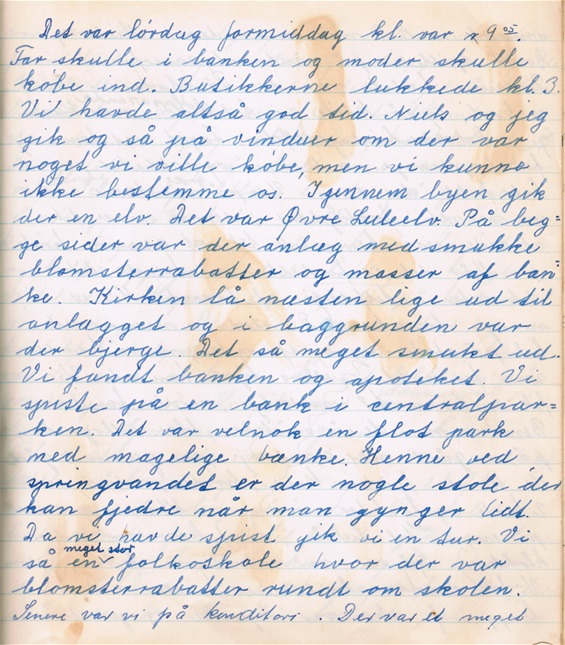 Det var lórdag formiddag kl. var 9 05.
Far skulle i banken og moder skulle
kóbe ind. Butikkerne lukkede kl. 3.
Vi havde altså god tid. Niels og jeg
gik og så på vinduer om der var
noget vi ville kobe, men vi kunne
ikke bestemme os. Igennem byen gik
der en elv. Det var Øvre Luleelv. På beg=
ge sider var der anlæg med smukke
blomsterrabatter og masser af bæn=
ke. Kirken lå næsten lige ud til
anlægget og i baggrunden var
der bjerge. Det så meget smukt ud.
Vi fandt banken og apoteket. Vi
spiste på en bænk i centralpar=
ken. Det var velnok en flot park
med magelige bænke. Henne ved
springvandet er der nogle stole der
kan fjedre når man gynger lidt.
Da vi havde spist gik vi en tur. Vi
så en meget stor folkoskole hvor der var
blomsterrabatter rundt om skolen.
Senere var vi på konditori. Der var et meget